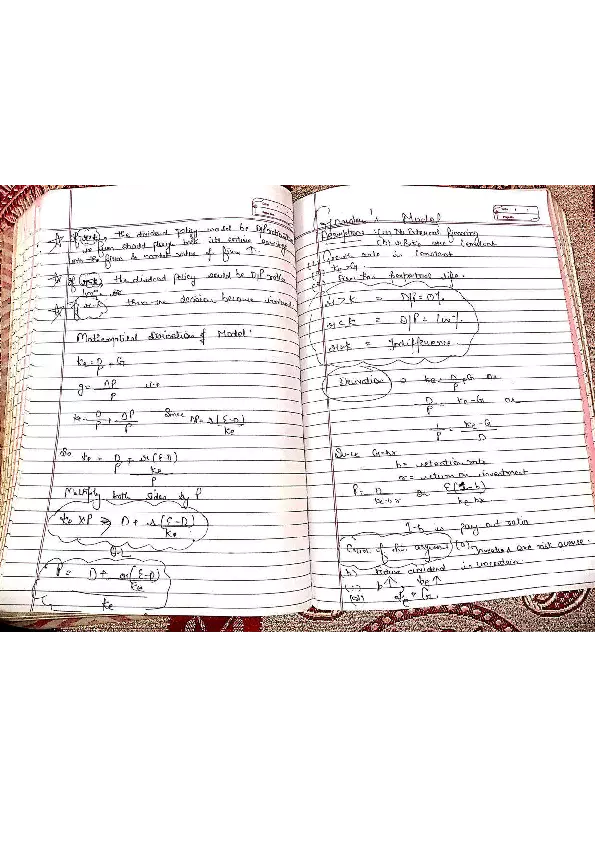 if r>k, the dividend policy would be
as firm should plough back its entire earnings
into the firm & market value of firm ↑.
If r<k, the dividend policy would be D/P ratio
100%
If r=k, then the decision become irrelevant
Mathematical Derivation of Model:
ke = D/P + G
g = ΔP/P
ke = D/P + ΔP/P Since ΔP = r(E-D)/ke
So ke = D/P + r(E-D)/ke / P
Multiply both sides by P
ke x P ⇒ D + r(E-D)/ke
Or
P = D + r(E-D)/ke
ke
Gordon's Model
Assumptions: (i) No External financing
(ii) r & ke are Constant
rate is Constant
ke > G
Firm has perpetual life.
r > k = D/P = 0%
r < k = D/P = 100%
r = k = Indifference
Derivation ⇒ ke = D/P + G or
D/P = ke - G or
1/P = ke - G / D
Since G = br
b = retention rate
r = return on investment
P = D / ke - br or E(1-b) / ke - br
1-b is pay out ratio
(a) Investors are risk averse.
(b) Future dividend is uncertain
b↑ ke↑